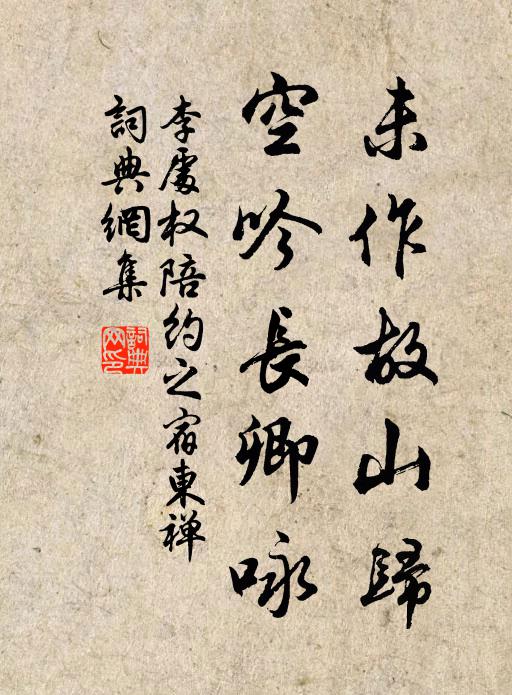 未作故山歸
空吟長卿咏
李處权陪約之宿東禅
詞典網集
詞典網印